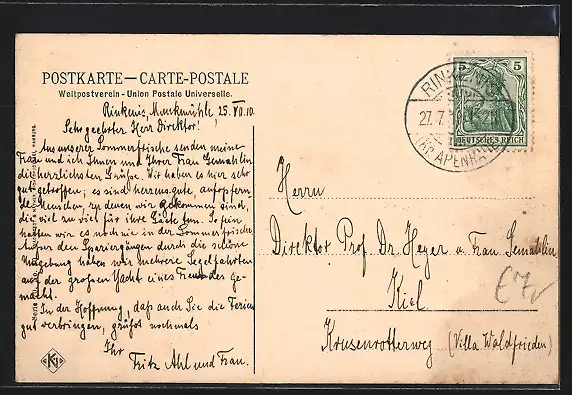 POSTKARTE — CARTE-POSTALE
Weltpostverein - Union Postale Universelle.
Rinkenis, Munkmühle, 25. VII. 10.
Sehr geehrter Herr Direktor!
Aus unserer Sommerfrische senden meine
Frau und ich Ihnen und Ihrer Frau Gemahlin
die herzlichsten Grüße. Wir haben es hier sehr
gut getroffen; es sind herzensgute, aufopfern-
de Menschen, zu denen wir gekommen sind,
die viel zu viel für ihre Gäste tun. So fein
hatten wir es noch nie in der Sommerfrische.
Außer den Spaziergängen durch die schöne
Umgebung haben wir mehrere Segelfahrten
auf der großen Yacht eines Freundes ge-
macht.
In der Hoffnung, daß auch Sie die Ferien
gut verbringen, grüßt nochmals
Ihr
Fritz Ahl und Frau.
RINKENIS
27.7.
(KR. APENRADE)
5
DEUTSCHES REICH
Herrn
Direktor Prof. Dr. Heyer u. Frau Gemahlin
Kiel
Krusenrotterweg (Villa Waldfrieden)
€7,-